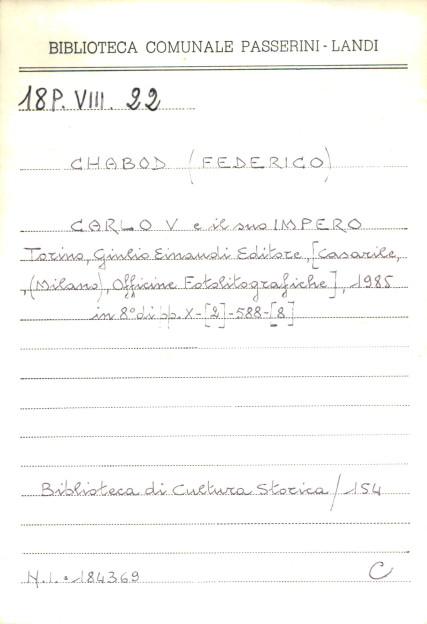 BIBLIOTECA COMUNALE PASSERINI-LANDI
18P. VIII. 22
CHABOD (FEDERICO)
CARLO V e il suo IMPERO
Torino, Giulio Einaudi Editore, [Casarile,
(Milano), Officine Fotolitografiche], 1985
in 8° di pp. X-[2]-588-[8]
Biblioteca di Cultura Storica / 154
N.I. 184369
C